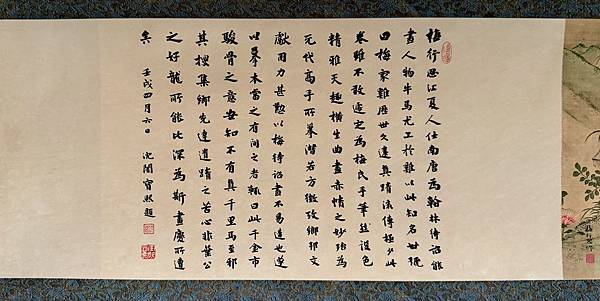 梅行思江夏人仕南唐為翰林待詔能
畫人物牛馬尤工於雞以此知名世號
曰梅家雞歷世久遠真蹟流傳極少此
卷雖不敢遽定為梅氏手筆然設色
精雅天趣橫生曲盡赤幘之妙殆為
元代高手所摹潛若方徵攷鄉邦文
獻用力甚勤以梅待詔畫不易遘也遂
以摹本當之有問之者輒曰此千金市
駿骨之意安知不有真千里馬至邪
其搜集鄉先達遺蹟之苦心非葉公
之好龍所能比深為斯畫慶所遭
矣 壬戌四月六日 沈闇寶熙題